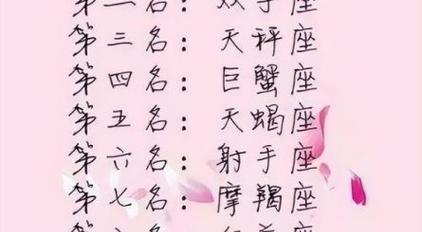 第二名：双子座
第三名：天秤座
第四名：巨蟹座
第五名：天蝎座
第六名：射手座
第七名：摩羯座